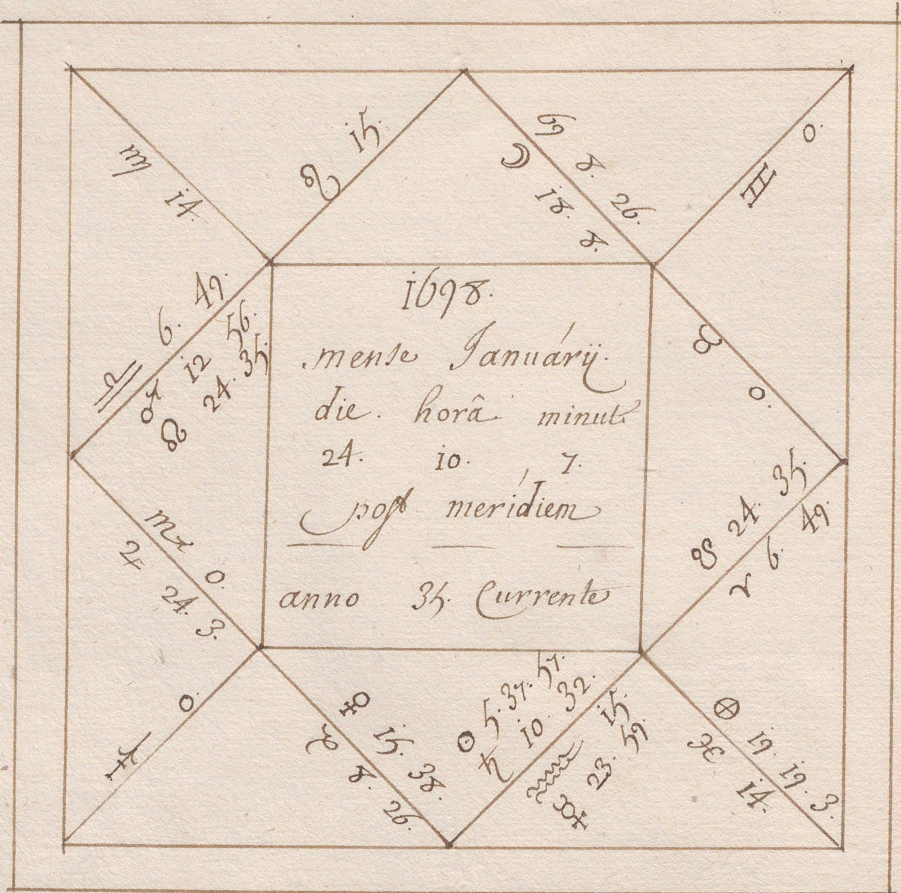 ♍ 14.
♌ 15.
♋ 8. 26.
☽ 18. 8.
♊ 0.
♎ 6. 49.
♂ 12 56.
☊ 24. 35.
1698.
mense Januárÿ.
die. horâ minut
24. 10. 7.
post merídiem
anno 35. Currente
♉ 0.
☋ 24. 35
♈ 6. 49.
♏ 0.
♃ 24. 3.
♐ 0.
♀ 15. 38.
♑ 8. 26.
☉ 5. 37. 57.
♄ 10. 32.
♒ 15.
☿ 23. 59.
⊗ 19. 19. 3.
♓ 14.